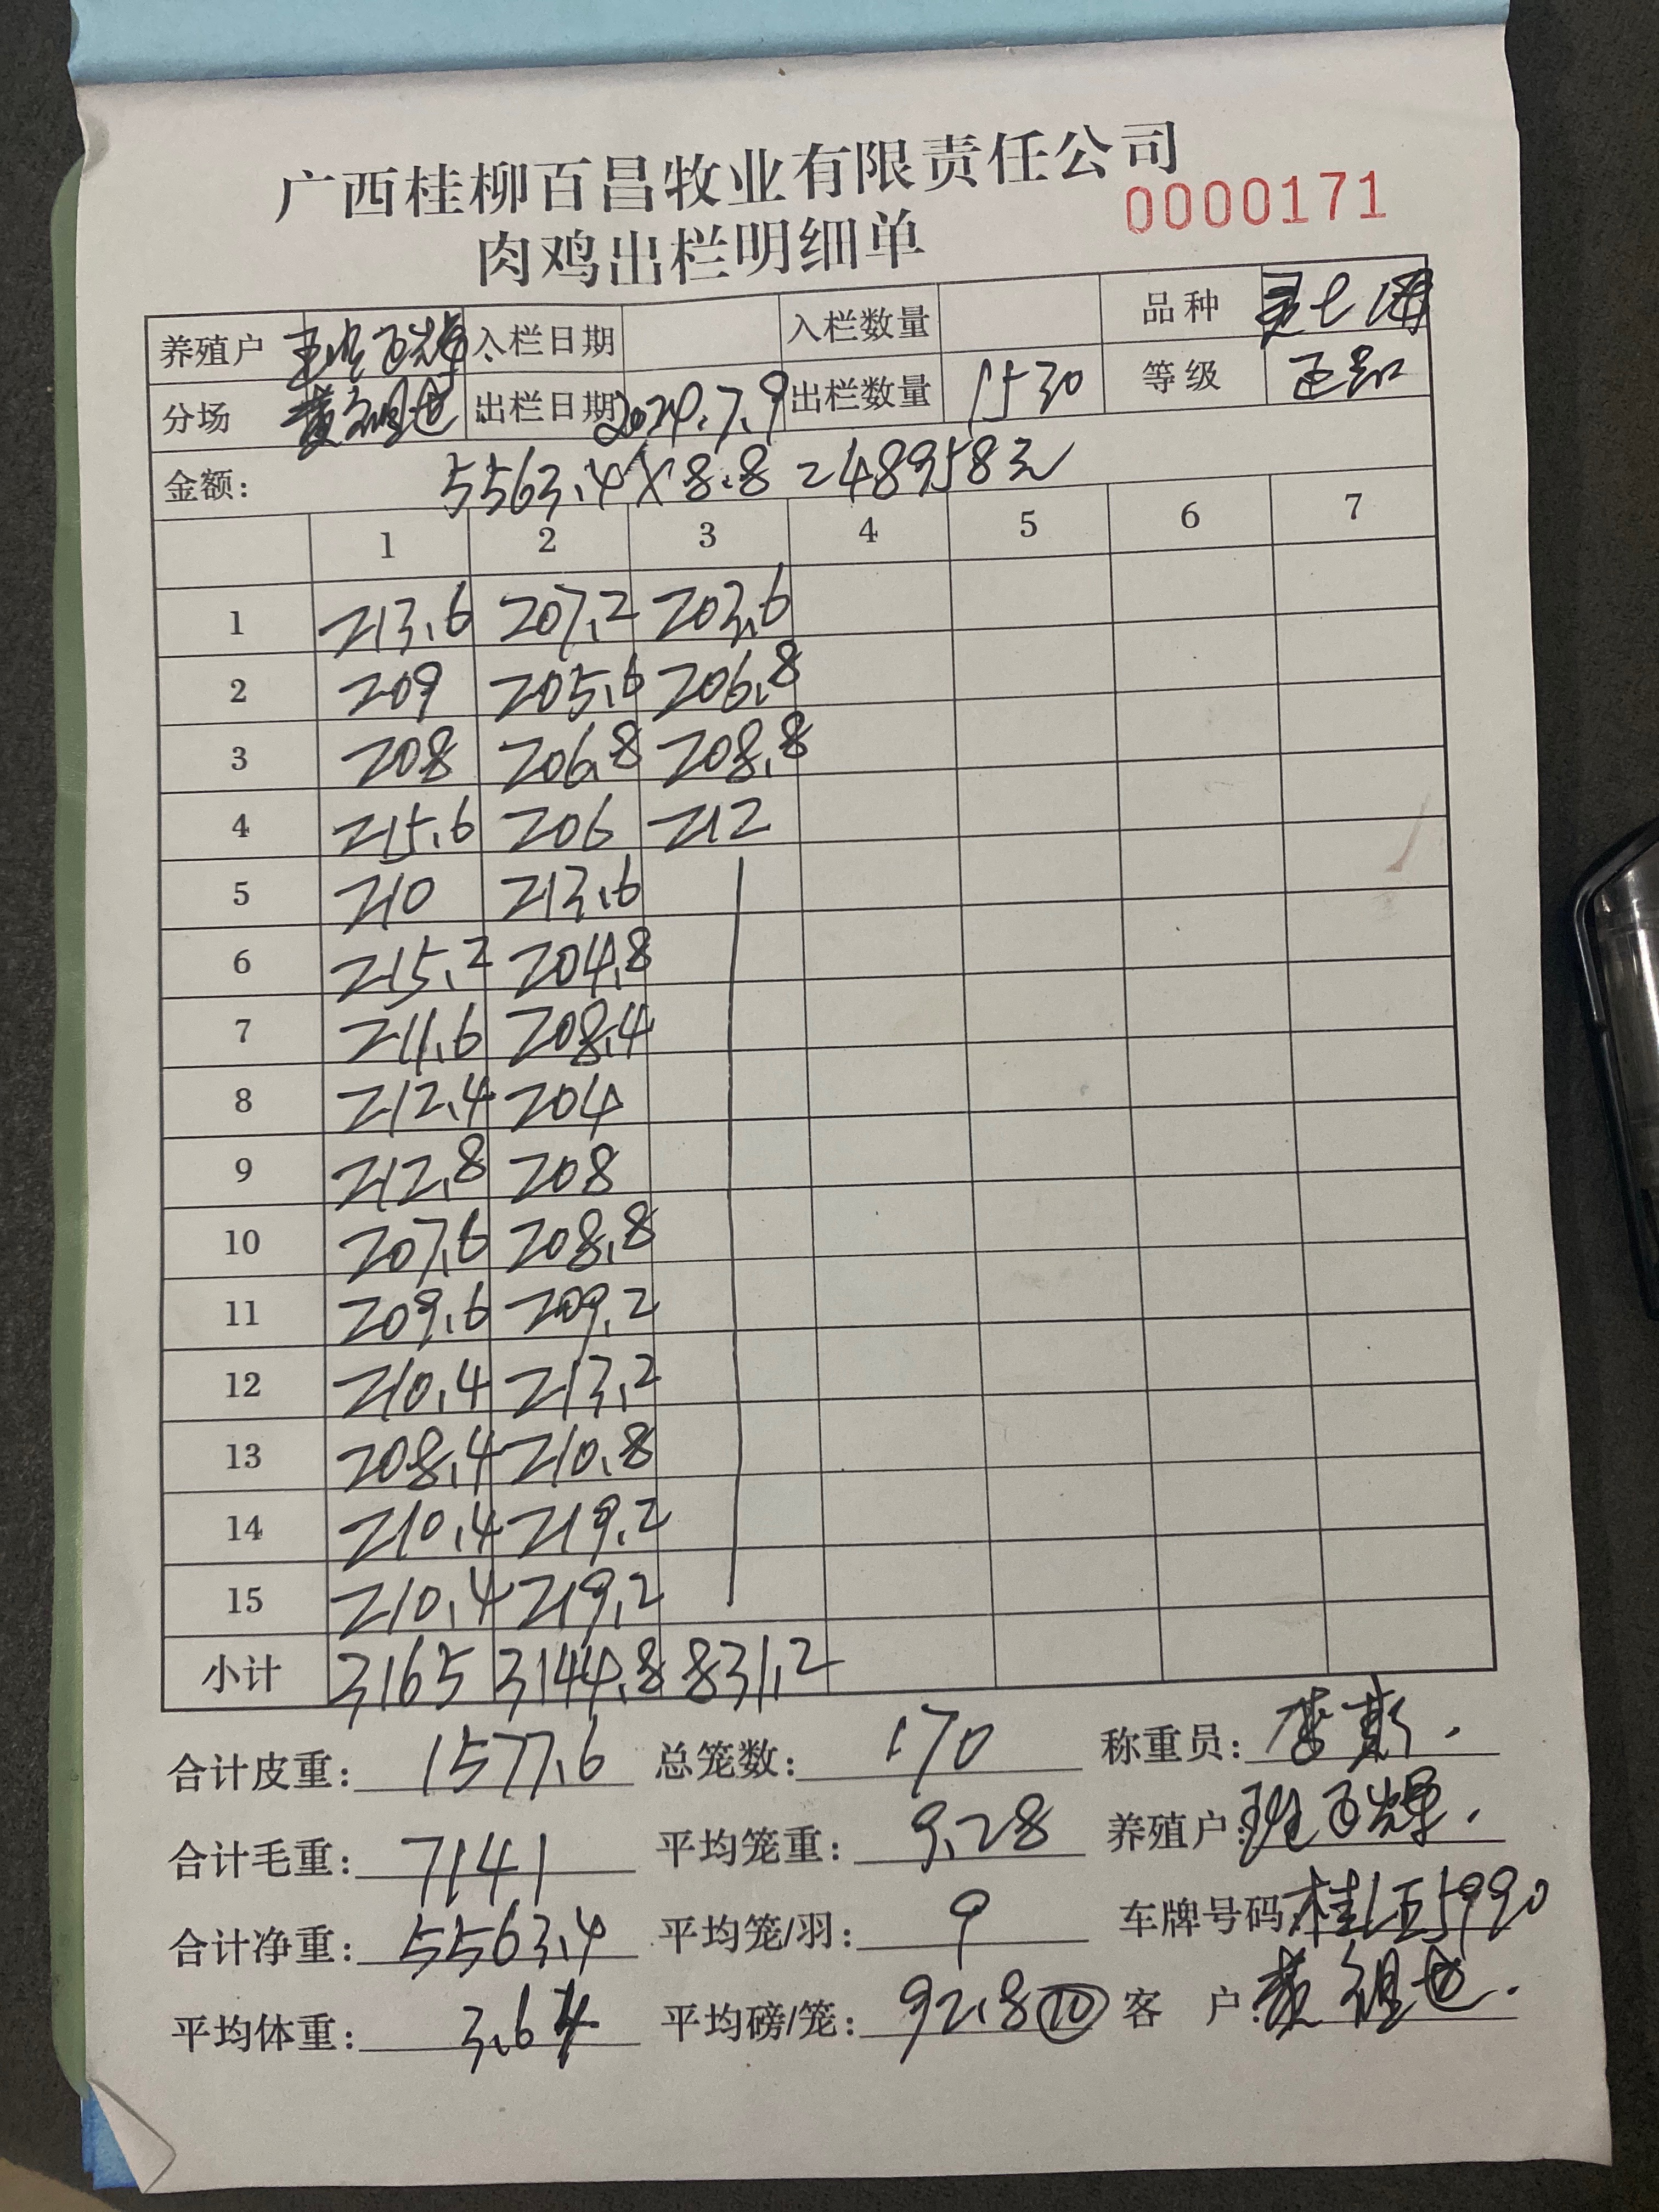 广西桂柳百昌牧业有限责任公司
0000171
肉鸡出栏明细单
养殖户 班百辉 入栏日期 入栏数量 品种
分场 黄祖芭 出栏日期 2024.7.9 出栏数量 1530 等级 正品
金额: 5563.4×8.8=48958元
1 2 3 4 5 6 7
1 213.6 207.2 203.6
2 209 205.6 206.8
3 208 206.8 208.8
4 215.6 206 212
5 210 213.6
6 215.2 204.8
7 211.6 208.4
8 212.4 204
9 212.8 208
10 207.6 208.8
11 209.6 209.2
12 210.4 213.2
13 208.4 210.8
14 210.4 219.2
15 210.4 219.2
小计 3165 3144.8 831.2
合计皮重: 1577.6 总笼数: 170 称重员: 李
合计毛重: 7141 平均笼重: 9.28 养殖户: 班百辉.
合计净重: 5563.4 平均笼/羽: 9 车牌号码 桂
平均体重: 3.64 平均磅/笼: 92.8 ⑩ 客 户: 黄祖